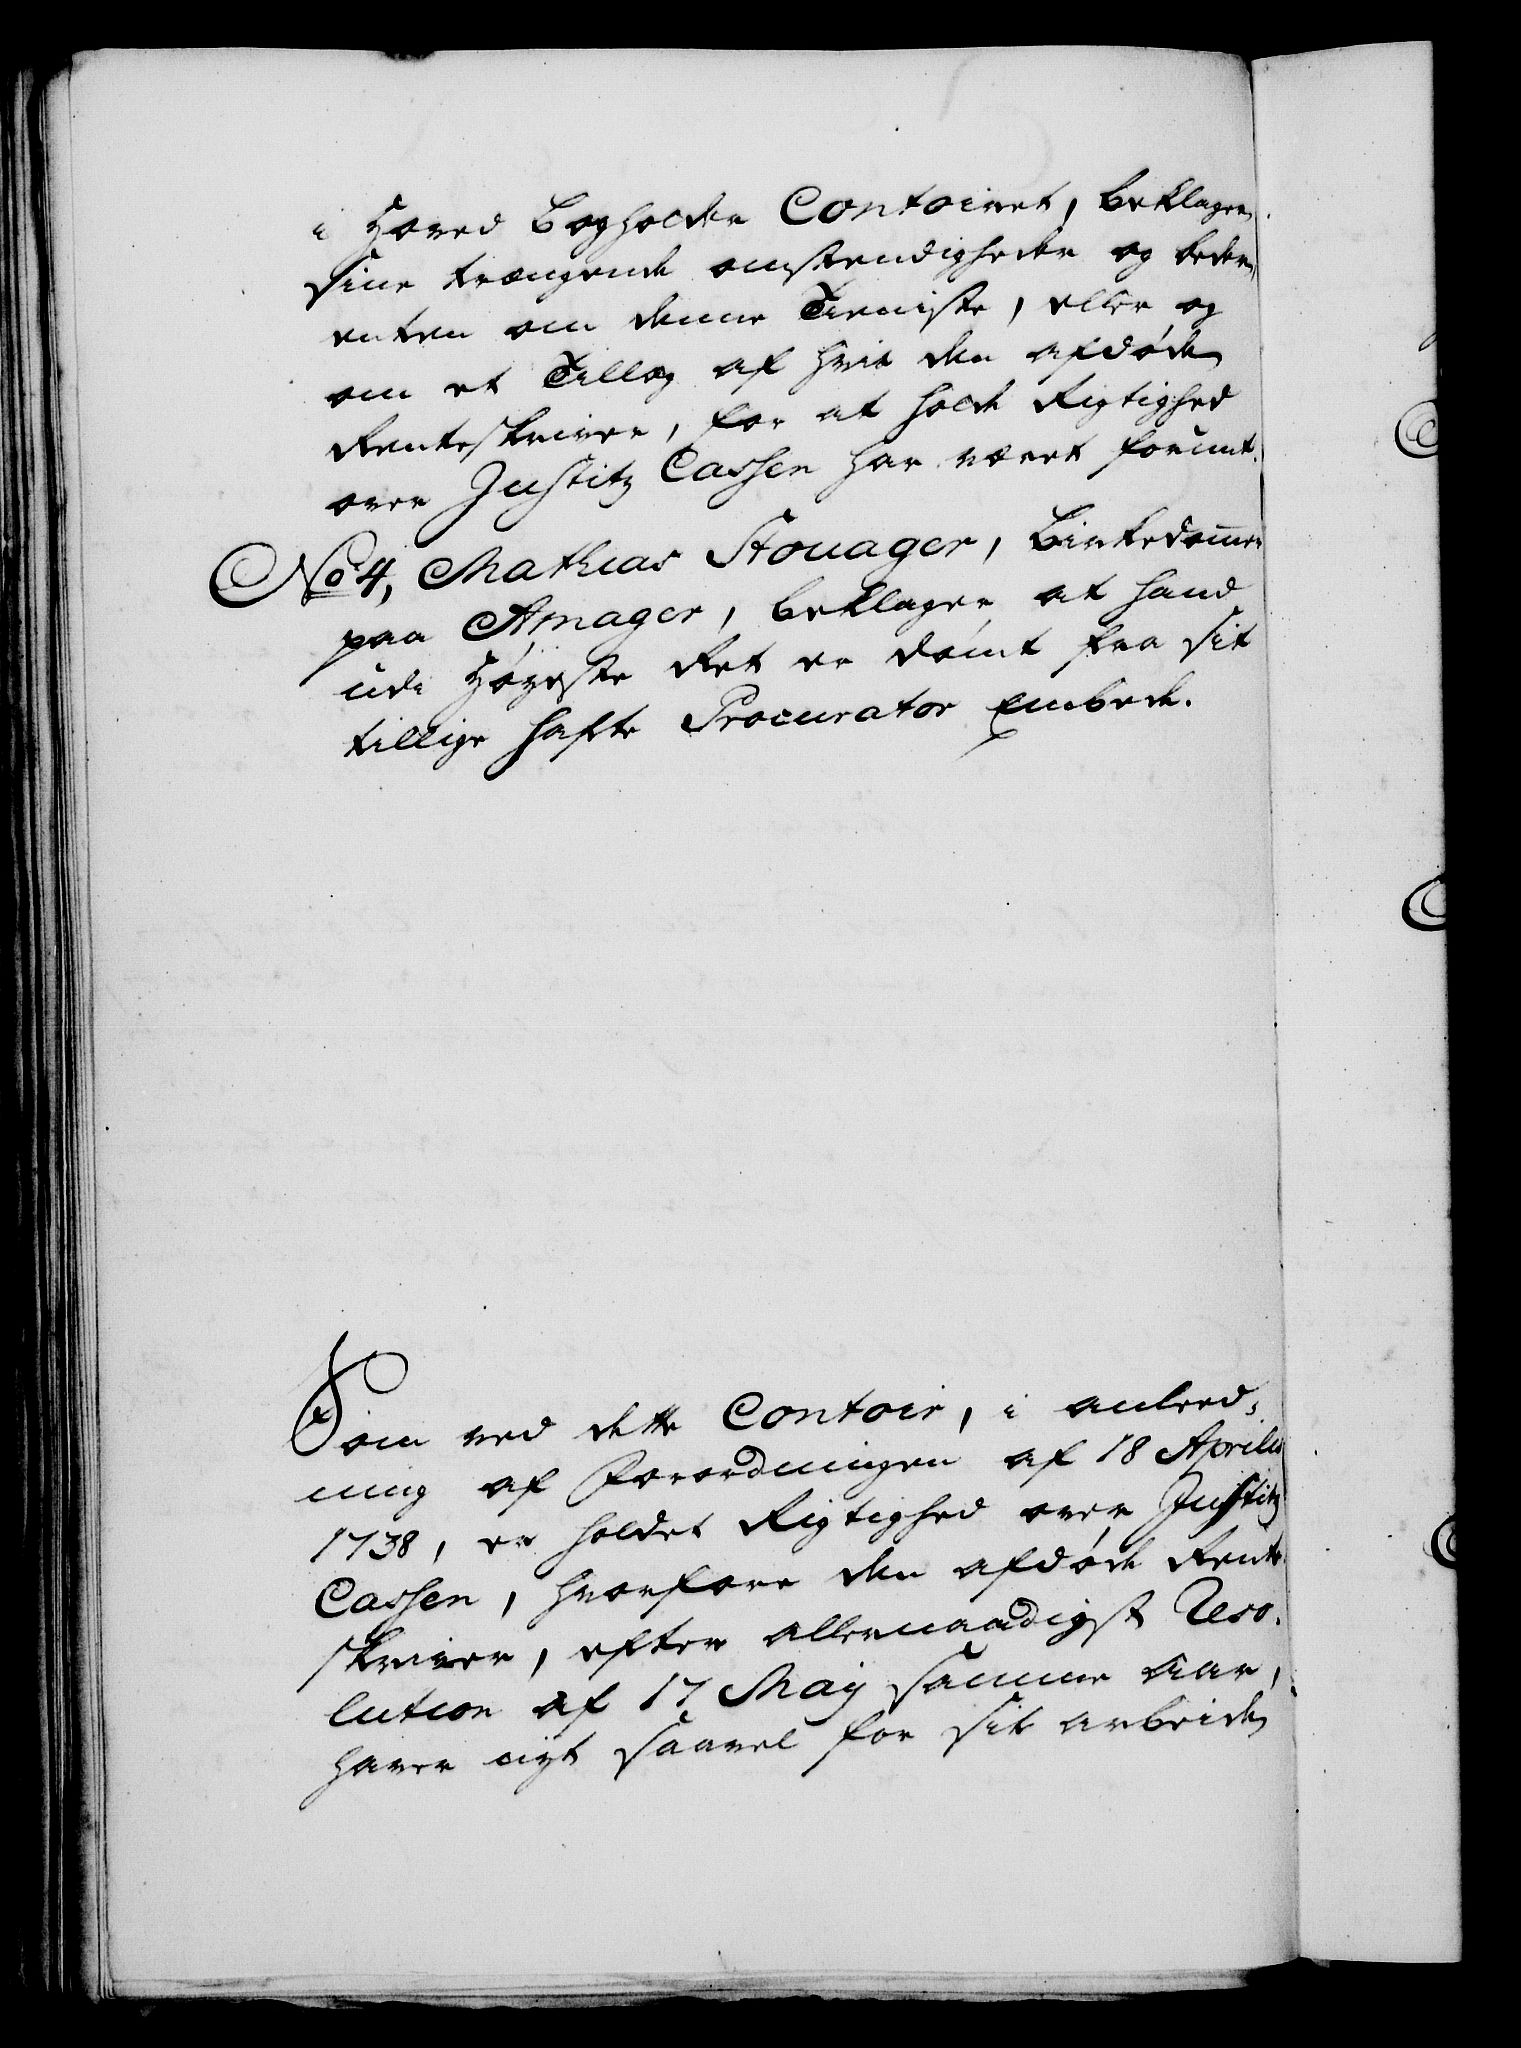 i Hoved Bogholder Contoiret, beklager
sine trængende omstendigheder og beder,
enten om denne Tieniste, eller og
om et Tillæg af hvis den afdøde
Renteskriver, for at holde Rigtighed
over Justitz Cassen har været forundt.
No 4, Mathias Stouager, Birkedommer
paa Amager, beklager, at hand
udi Høyeste Ret er dømt fra sit
tillige hafte Procurator Embede.
Som ved dette Contoir, i anled-
ning af Forordningen af 18 Aprilis
1738, er holdet Rigtighed over Justitz
Cassen, hvorfore den afdøde Rente-
skriver, efter allernaadigst Reso-
lution af 17 Maij samme Aar,
haver nÿt saavel for sit arbeide,